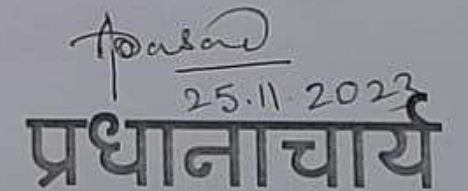 25.11.2023
प्रधानाचार्य